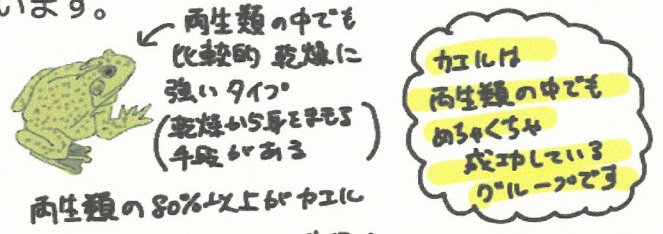 います。
両生類の中でも
比較的 乾燥に
強いタイプ
(乾燥から身をまもる
手段がある)
両生類の80%以上がカエル
カエルは
両生類の中でも
めちゃくちゃ
成功している
グループです